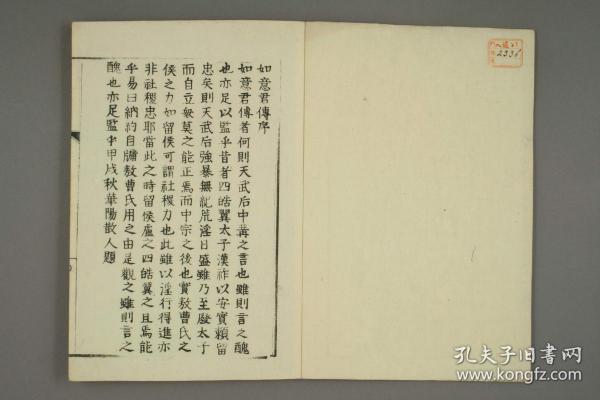 如意君傳序
如意君傳者何則天武后中冓之言也雖則言之醜
也亦足以監乎昔者四皓翼太子漢祚以安實賴留
忠矣則天武后強暴無紀荒淫日盛雖乃至廢太子
而自立衆莫之能正焉而中宗之後也實敖曹氏之
侯之力如留侯可謂社稷力也此雖以淫行得進亦
非社稷忠耶當此之時留侯盧之四皓翼之且焉能
乎易曰納約自牖敖曹氏用之由是觀之雖則言之
醜也亦足監乎甲戌秋華陽散人題
2336
孔夫子旧書网
www.kongfz.com